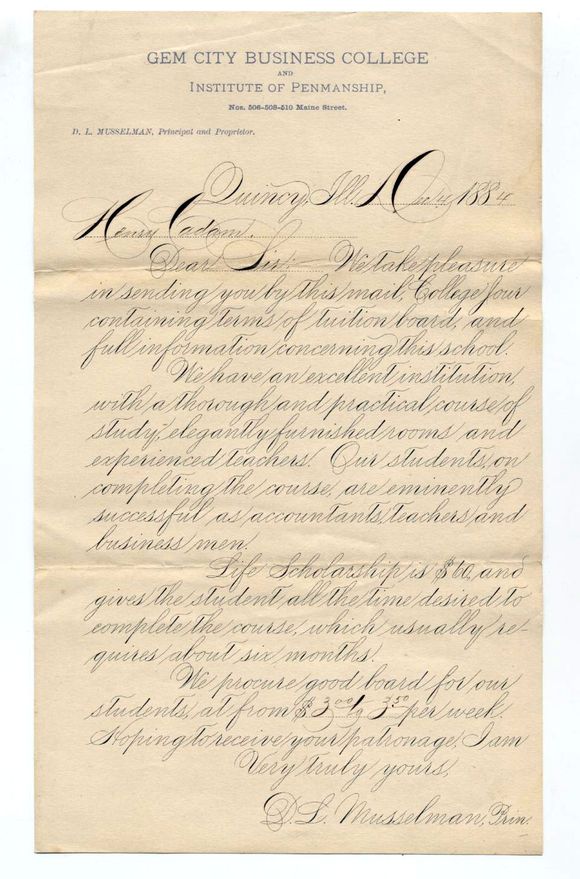 GEM CITY BUSINESS COLLEGE
AND
INSTITUTE OF PENMANSHIP,
Nos. 506-508-510 Maine Street.
D. L. MUSSELMAN, Principal and Proprietor.
Quincy, Ill. 1884
Henry Eadami,
Dear Sir: We take pleasure
in sending you by this mail, College Jour
containing terms of tuition board, and
full information concerning this school.
We have an excellent institution,
with a thorough and practical course of
study, elegantly furnished rooms and
experienced teachers. Our students, on
completing the course, are eminently
successful as accountants, teachers and
business men.
Life Scholarship is $60, and
gives the student all the time desired to
complete the course, which usually re-
quires about six months.
We procure good board for our
students, at from $3.00 to 3.50 per week.
Hoping to receive your patronage, I am
Very truly yours,
D. L. Musselman, Prin.